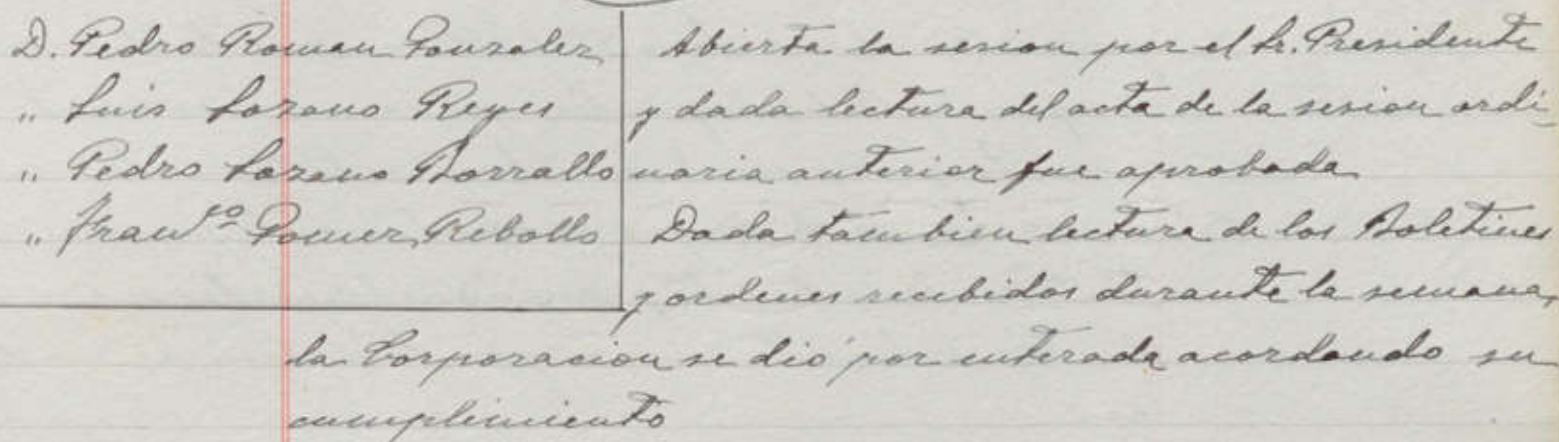 D. Pedro Roman Gonzalez
" Luis Lozano Reyes
" Pedro Lozano Borrallo
" Fran<sup>co</sup> Gomez Rebollo
Abierta la sesion por el Sr. Presidente
y dada lectura del acta de la sesion ordi-
naria anterior fue aprobada
Dada tambien lectura de los Boletines
y ordenes recibidos durante la semana,
la Corporacion se dió por enterada acordando su
cumplimiento